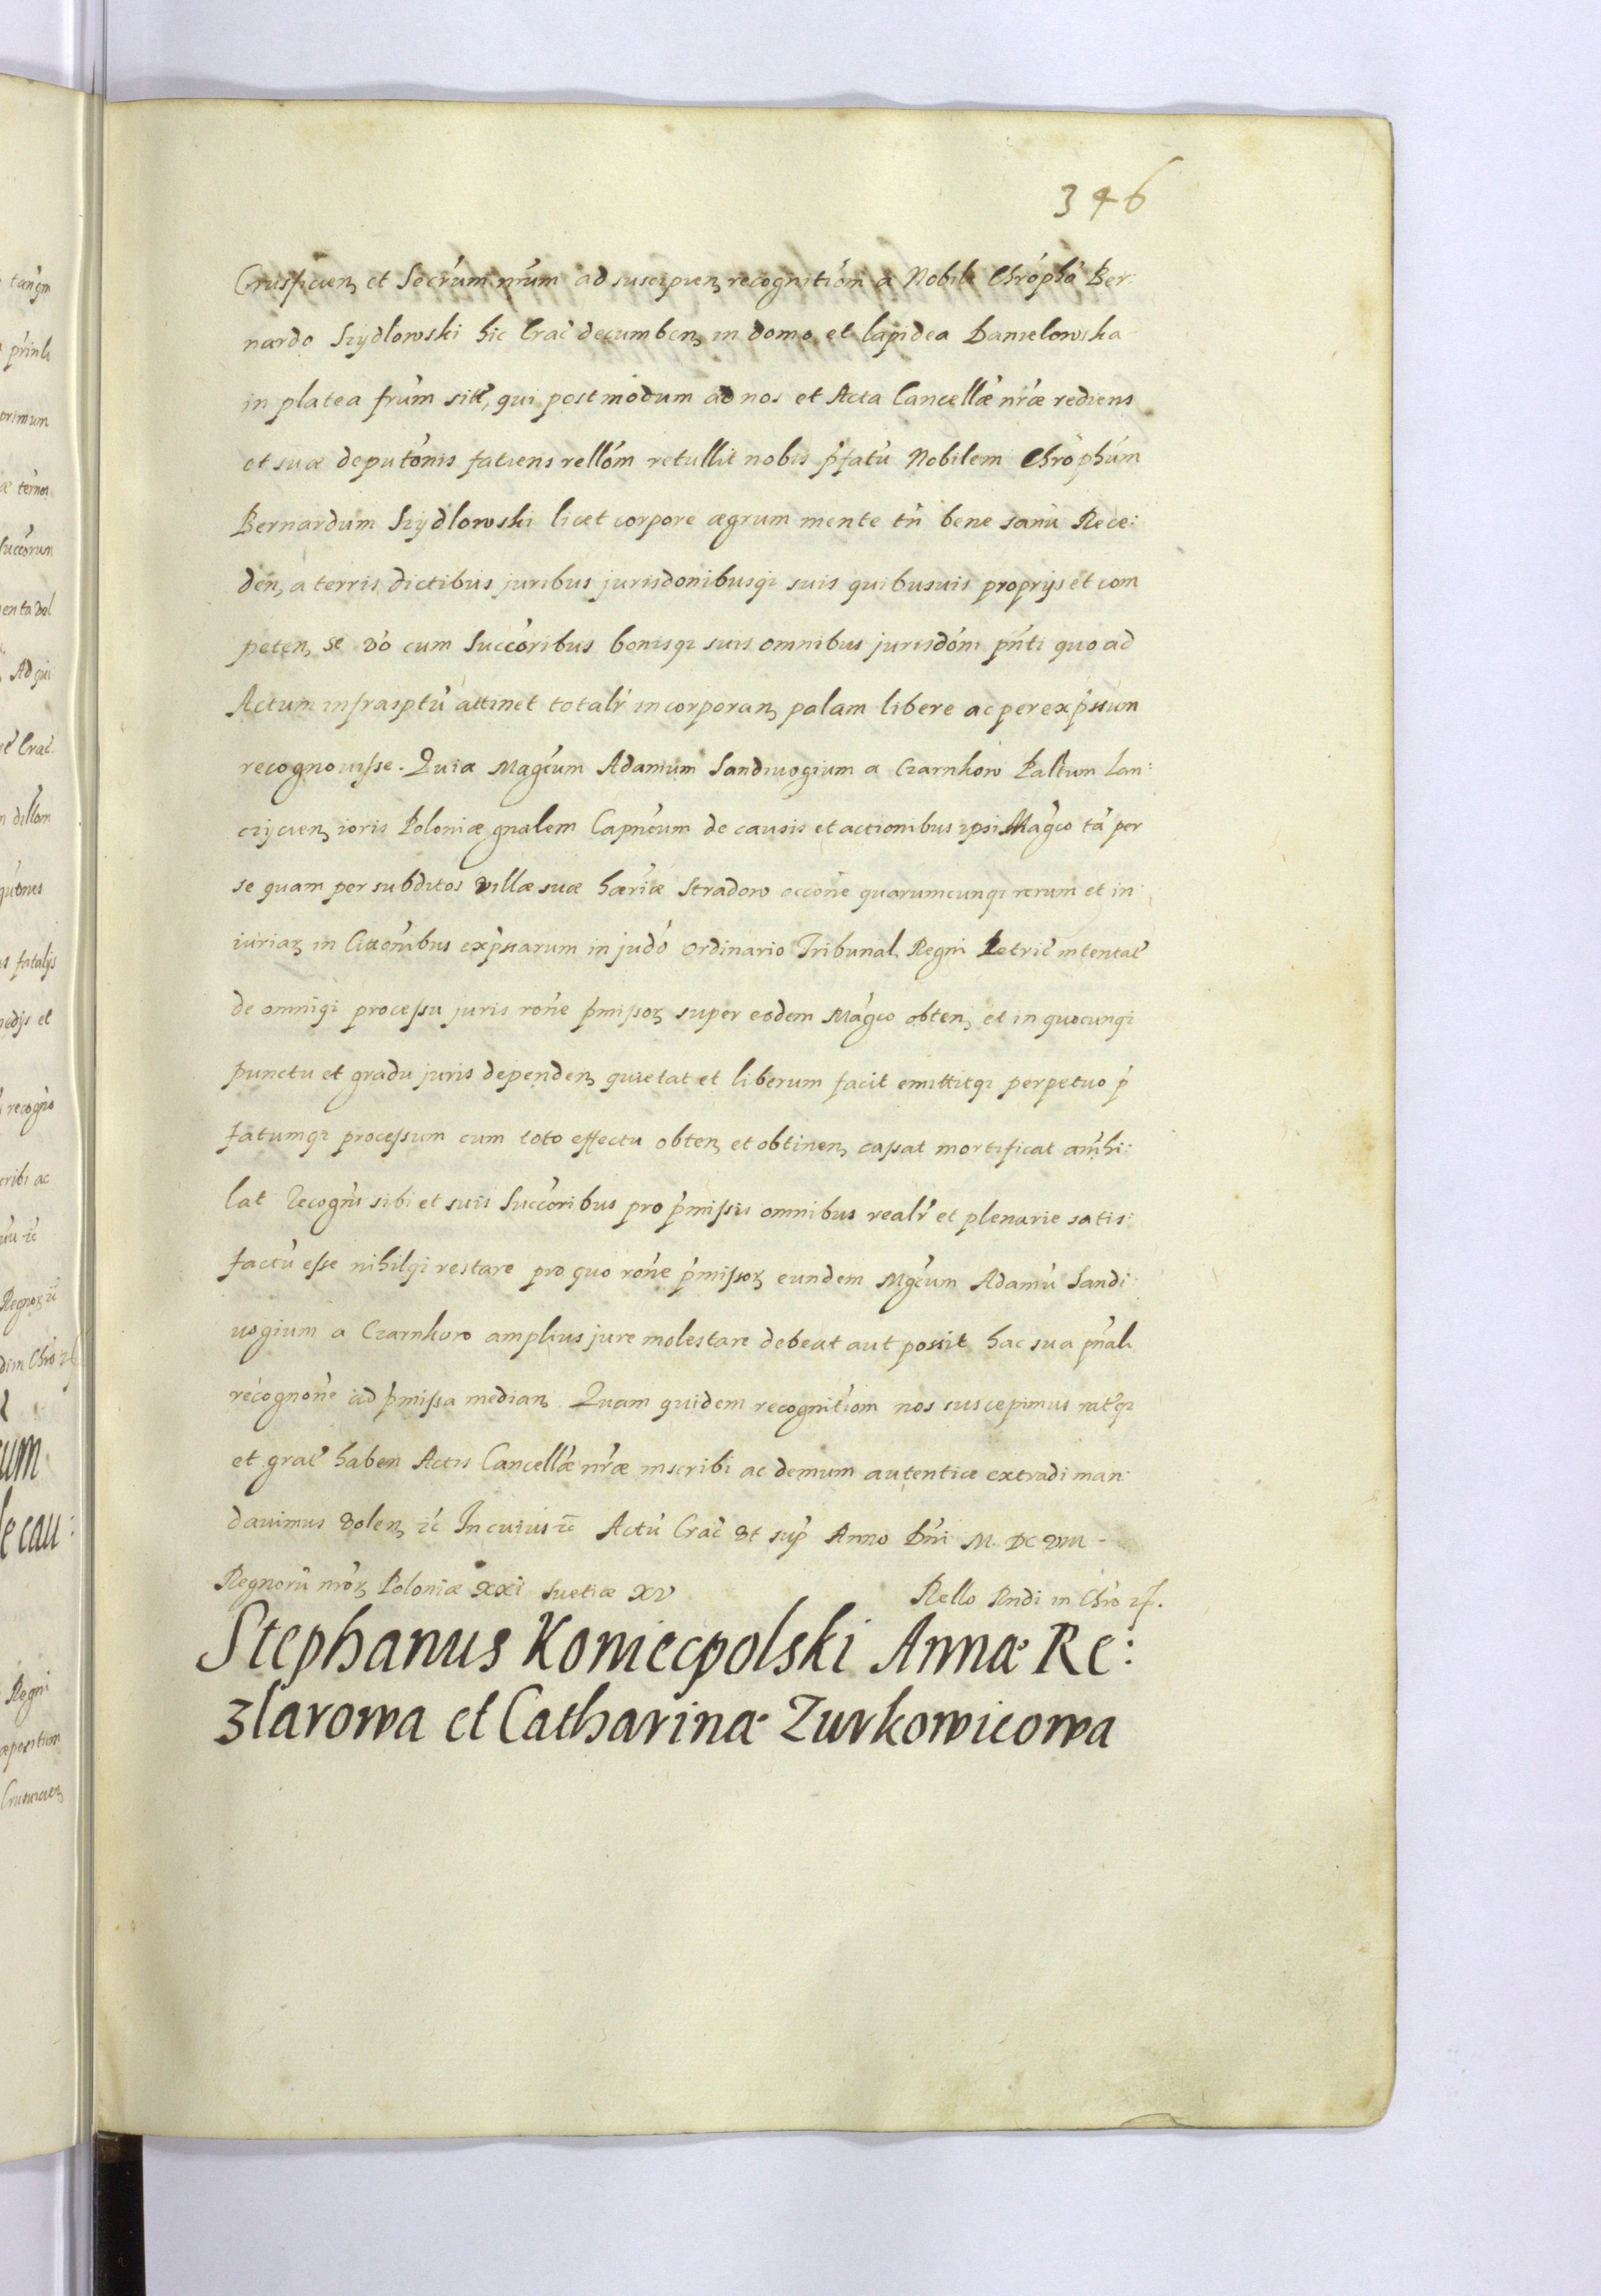 346
Crusficien et Secrum nrum ad suscipien recognitiom a Nobili Chrôpho Ber:
nardo Szydlowski hic Crac decumben in domo et lapidea Danielowska
in platea frum sitt, qui postmodum ad nos et Acta Cancellæ nræ rediens
et suæ deputonis faciens rellom retullit nobis pfatu Nobilem Chrophum
Bernardum Szydlowski licet corpore ægrum mente tn bene sanu Rece:
den, a terris dictibus juribus jurisdonibusqz suis quibusuis proprijs et com
peten, se vo cum Succoribus bonisqz suis omnibus jurisdoni pnti quo ad
Actum infrasptu attinet totalr incorporan palam libere ac per expssum
recognouisse. Quia Magcum Adamum Sandiuogium a Czarnkow Paltum Lan:
czycien ioris Poloniæ gnalem Capneum de causis et actionibus ipsi Magco ta per
se quam per subditos villæ suæ hæriæ Stradow occone quarumcunqz rerum et in:
iuriaz in Cittonibus expssarum in judo Ordinario Tribunal Regni Petric intentat
de omniqz processu juris rone pmissoz super eodem Magco obten, et in quocunqz
punctu et gradu juris dependen quietat et liberum facit emittitqz perpetuo p
fatumqz processum cum toto effectu obten et obtinen, cassat mortificat annihi:
lat Recogns sibi et suis Succoribus pro pmissis omnibus realr et plenarie satis:
factu esse nihilqz restare pro quo rone pmissoz eundem Mgcum Adamu Sandi:
uogium a Czarnkow amplius jure molestare debeat aut possit hac sua pnali
recognone ad pmissa median. Quam quidem recognitiom nos suscepimus ratqz
et grat haben Actis Cancellæ nræ inscribi ac demum autentice extradi man:
dauimus volen, zc In cuius zc Actu Crac vt sup Anno Dni M. DC VIII -
Regnoru nroz Poloniæ XXI Suetiæ XV Rello Rndi in Chro zc.
Stephanus Koniecpolski Annæ Re:
zlarowa et Catharinæ Zurkowicowa